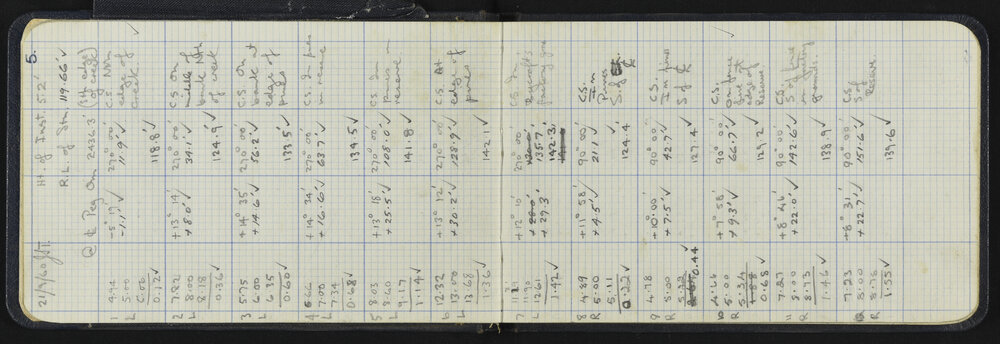 21/9/60 Ht. of Inst. 5.2' 5.
R.L of Stn. 119.66' ✓
@ ₵ Peg Om 2436.3'
1 4.94 -5° 19' 270° 00' C.S. Nth
L 5.00 -1.1' ✓ 11.9' ✓ edge of
creek
0.12 ✓ 118.8' ✓
2 7.82 +13° 14' 270° 00' C.S. on
L 8.00 +8.0' ✓ 34.1' ✓ middle of
8.18 bank Nth
0.36 ✓ 124.9' ✓ of creek
3 5.75 +14° 35' 270° 00' C.S. on
L 6.00 +14.6' ✓ 56.2' ✓ bank at
6.35 edge of
0.60 ✓ 133.5' ✓ pines
4 6.66 +14° 34' 270° 00' C.S. In pines
L 7.00 +16.6' ✓ 63.7' ✓ in reserve
7.34
0.68 ✓ 139.5 ✓
5 8.03 +13° 18' 270° 00' C.S. In
L 8.60 +25.5' ✓ 108.0' ✓ pines in
9.17 reserve
1.14 ✓ 141.8 ✓
6 12.32 +13° 12' 270° 00' C.S. At
L 13.00 +30.2' ✓ 128.9' ✓ edge of
13.68 pines
1.36 ✓ 142.1 ✓
7 +12° 10' 270° 00 C.S. In
L 11.90 +29.3 135.7'
12.61 142.3' factory
1.42 ✓
8 4.89 +11° 58' 90° 00' C.S.
R 5.00 +4.5' ✓ 21.1' ✓ In
5.11 Pines
0.22 ✓ 124.4' S. of ₵
9 4.78 +10° 00' 90° 00' C.S.
R 5.00 +7.5' ✓ 42.7' ✓ In pines
5.22 S of ₵
0.44 ✓ 127.4
10 4.66 +7° 58' 90° 00' C.S.
R 5.00 +9.3' ✓ 66.7' ✓ On pine
5.34 edge of
0.68 ✓ 129.2 ✓ Reserve
11 7.27 +8° 46' 90° 00' C.S.
R 8.00 +22.0' ✓ 142.6' ✓ S. of pine
8.73 in
1.46 ✓ 138.9' ✓ grounds.
7.23 +8° 31' 90° 00' C.S.
R 8.00 +22.7' ✓ 151.6' ✓ S of
8.78 Reserve
1.55 ✓ 139.6 ✓